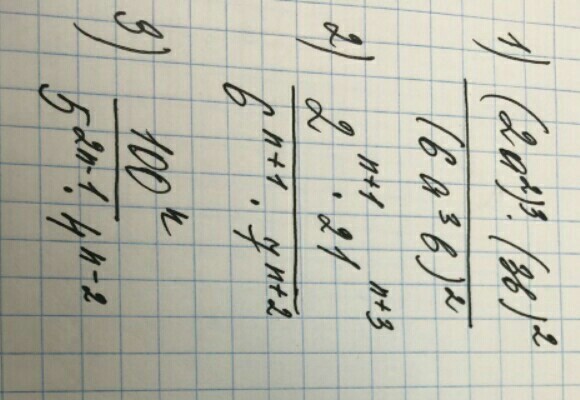 1) (2a²)³ · (3b)²
(6a³b)²
2) 2ⁿ⁺¹ · 21ⁿ⁺³
6ⁿ⁺¹ · 7ⁿ⁺²
3) 100ⁿ
5²ⁿ⁻¹ · 4ⁿ⁻²